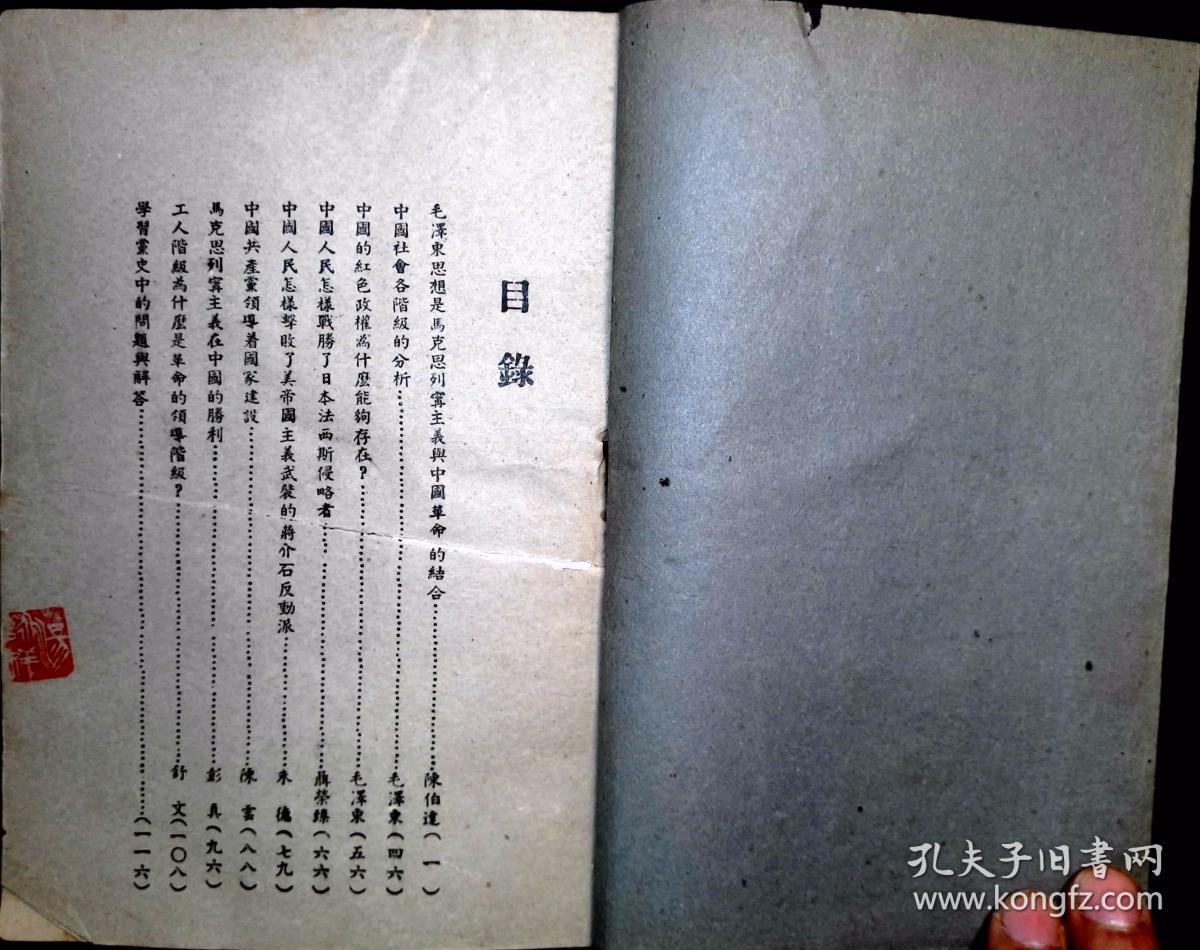 目錄
毛澤東思想是馬克思列寧主義與中國革命的結合……陳伯達(一)
中國社會各階級的分析……毛澤東(四六)
中國的紅色政權為什麼能夠存在?……毛澤東(五六)
中國人民怎樣戰勝了日本法西斯侵略者……聶榮臻(六六)
中國人民怎樣擊敗了美帝國主義武裝的蔣介石反動派……朱德(七九)
中國共產黨領導着國家建設……陳雲(八八)
馬克思列寧主義在中國的勝利……彭真(九六)
工人階級為什麼是革命的領導階級?……舒文(一〇八)
學習黨史中的問題與解答……(一一六)
孔夫子旧書网
www.kongfz.com